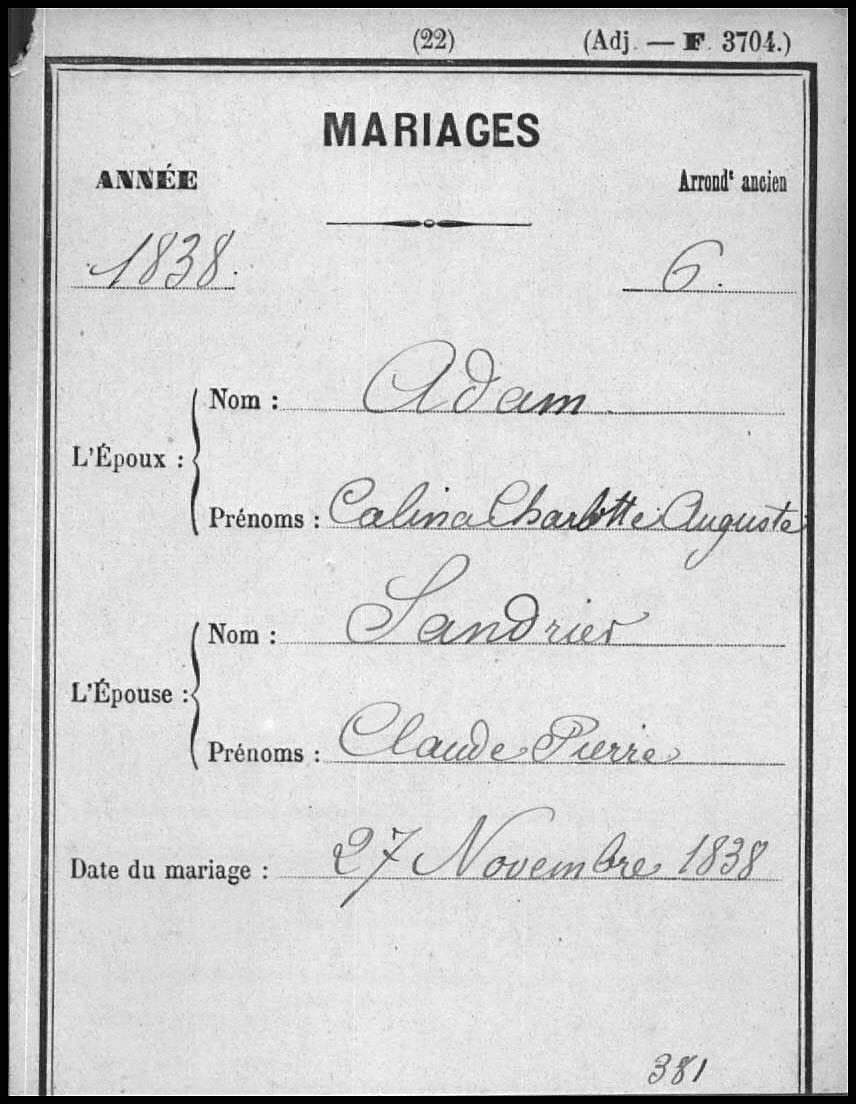 (22) (Adj. — F. 3704.)
MARIAGES
ANNÉE Arrondt ancien
1838. 6.
Nom : Adam
L'Époux :
Prénoms : Calina Charlotte Auguste
Nom : Sandrier
L'Épouse :
Prénoms : Claude Pierre
Date du mariage : 27 Novembre 1838
381